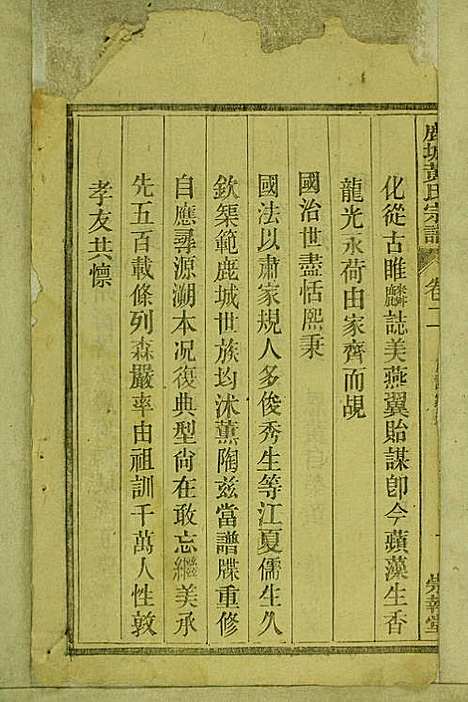 鹿城黃氏宗譜 卷二
崇華堂
化從古睢麟誌美燕翼貽謀卽今蘋藻生香
龍光永荷由家齊而覘
國治世盡恬熙秉
國法以肅家規人多俊秀生等江夏儒生久
欽榘範鹿城世族均沐薰陶茲當譜牒重修
自應尋源溯本況復典型尙在敢忘繼美承
先五百載條列森嚴率由祖訓千萬人性敦
孝友共懍